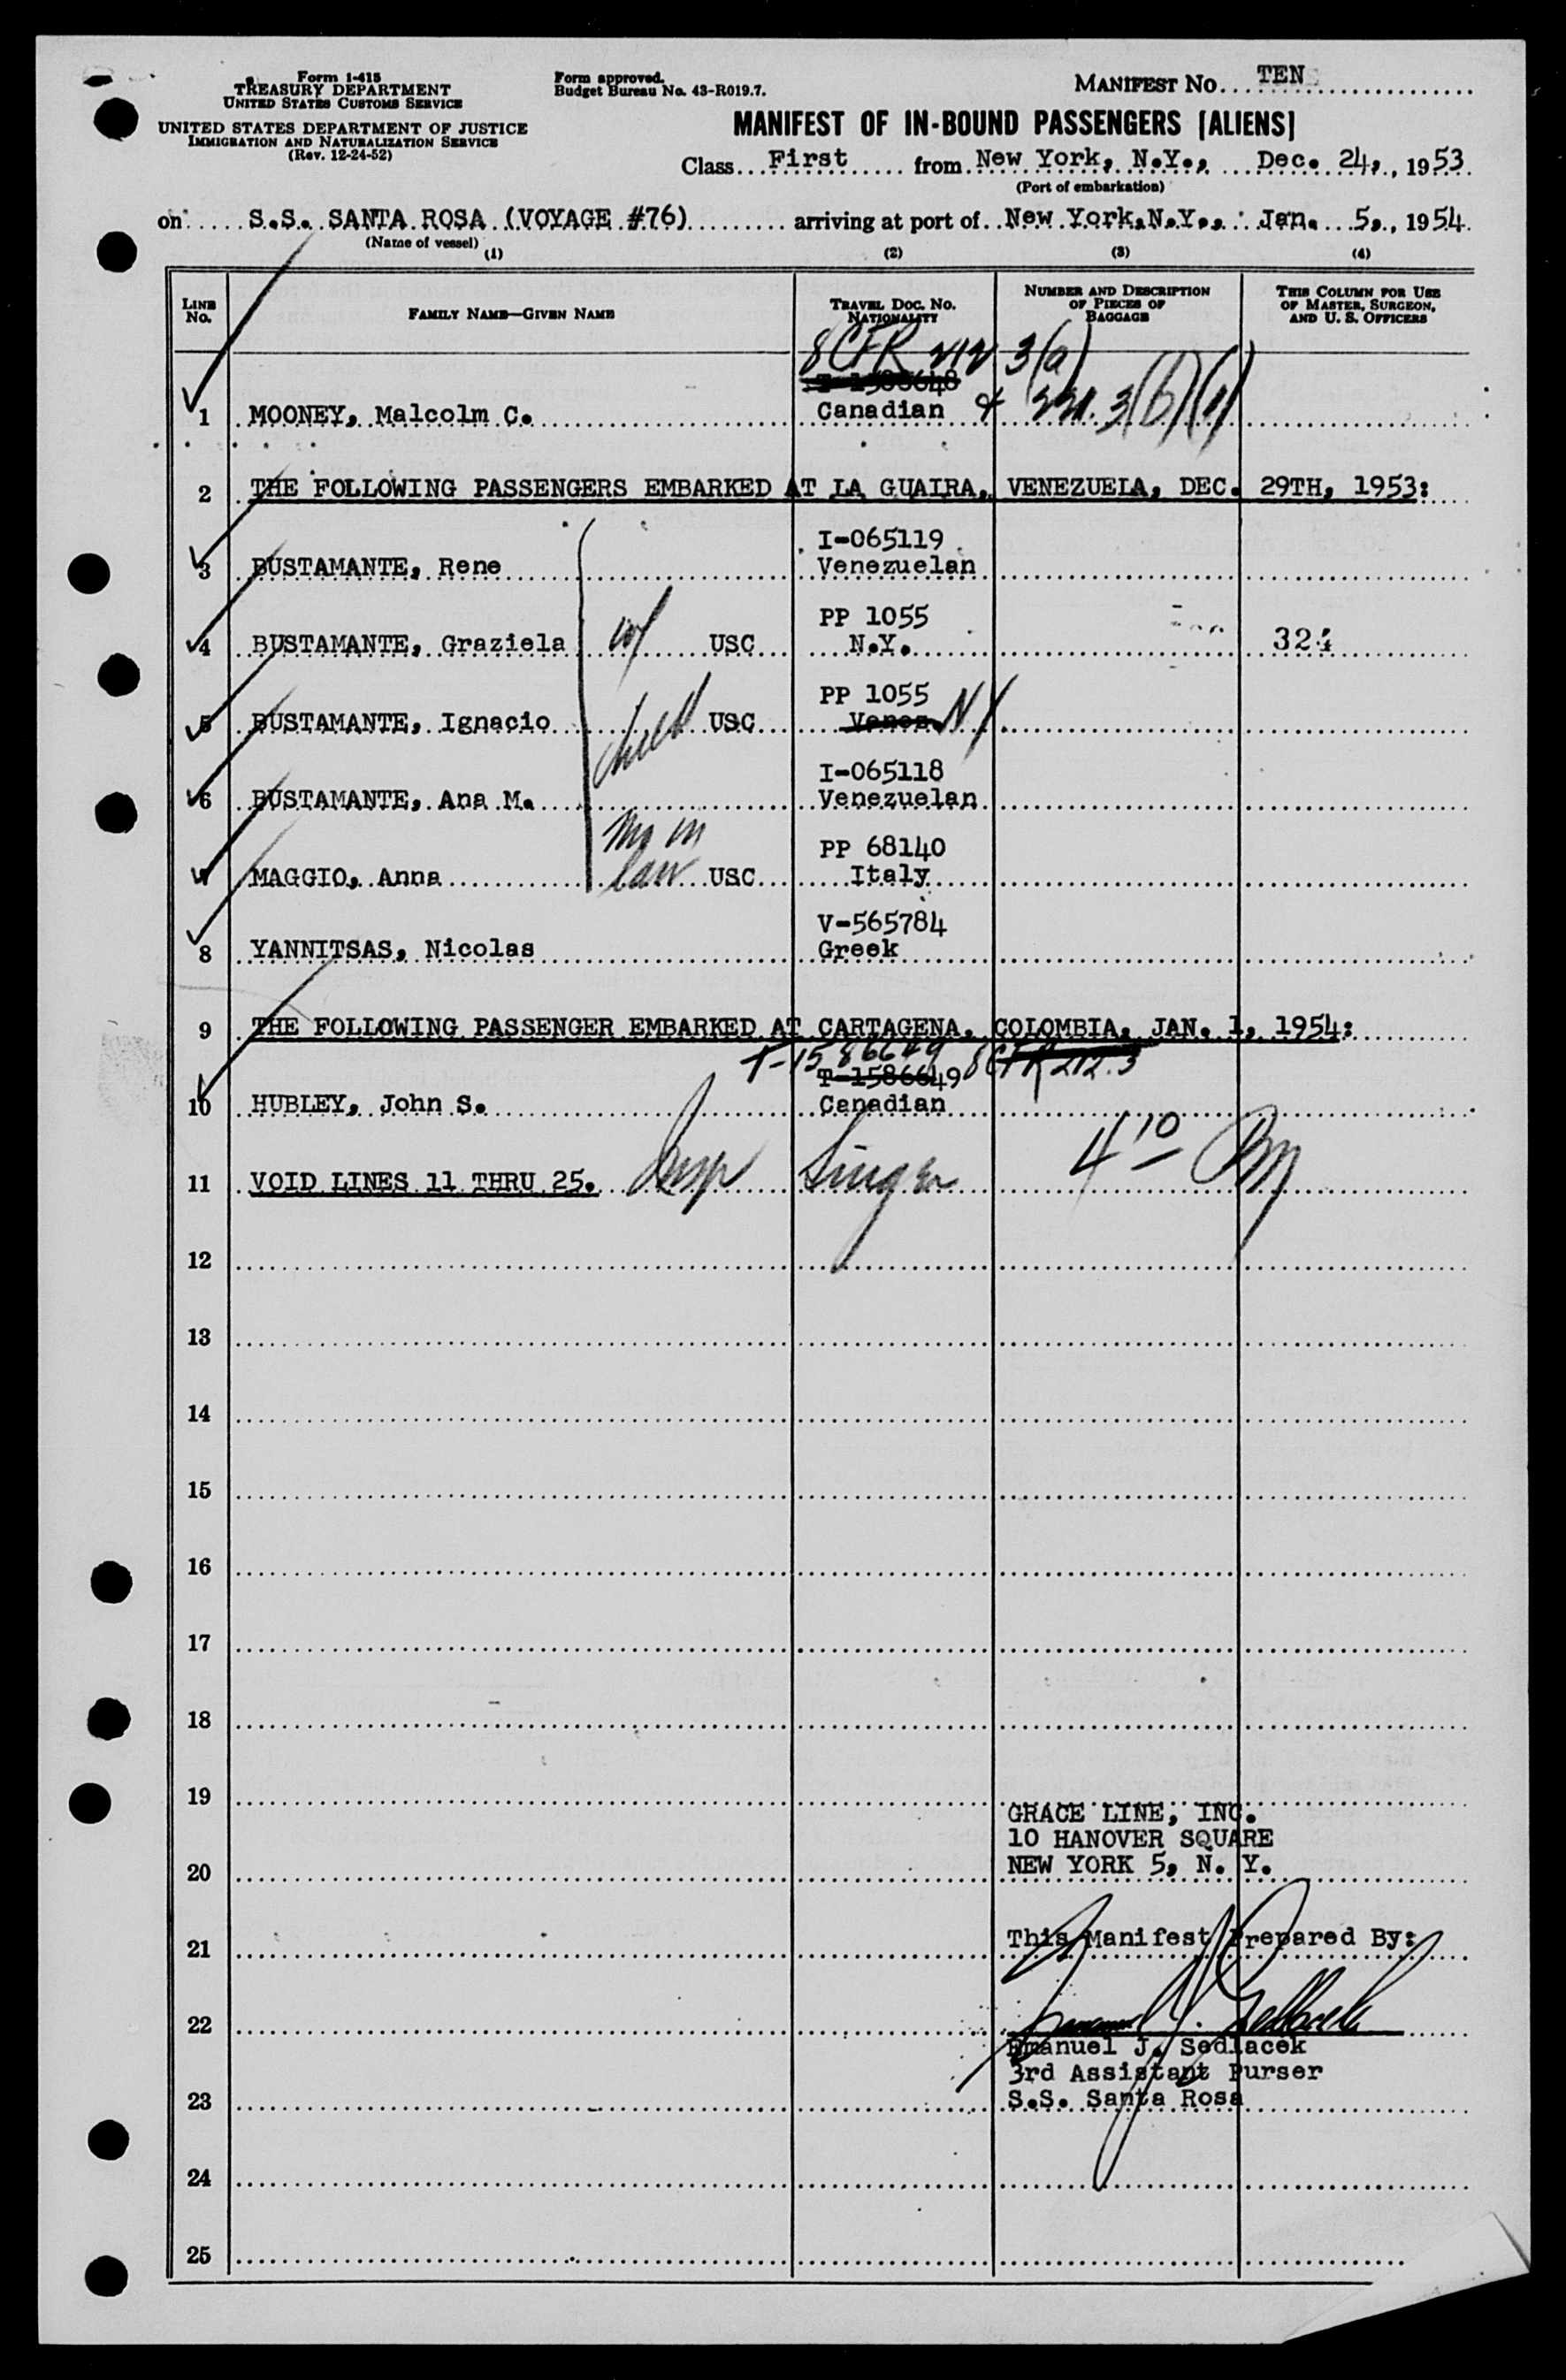 Form I-415
TREASURY DEPARTMENT
UNITED STATES CUSTOMS SERVICE
UNITED STATES DEPARTMENT OF JUSTICE
IMMIGRATION AND NATURALIZATION SERVICE
(Rev. 12-24-52)
Form approved.
Budget Bureau No. 43-R019.7.
MANIFEST No. TEN
MANIFEST OF IN-BOUND PASSENGERS (ALIENS)
Class First from New York, N.Y., Dec. 24, 1953
(Port of embarkation)
on S.S. SANTA ROSA (VOYAGE #76) arriving at port of New York,N.Y., Jan. 5, 1954
(Name of vessel)
(1) (2) (3) (4)
LINE No. FAMILY NAME—GIVEN NAME TRAVEL DOC. No. NATIONALITY NUMBER AND DESCRIPTION OF PIECES OF BAGGAGE THIS COLUMN FOR USE OF MASTER, SURGEON, AND U. S. OFFICERS
8 CFR 212 3(a)
T-1586648
1 MOONEY, Malcolm C. Canadian & 221.3(b)(1)
2 THE FOLLOWING PASSENGERS EMBARKED AT LA GUAIRA, VENEZUELA, DEC. 29TH, 1953:
I-065119
3 BUSTAMANTE, Rene Venezuelan
PP 1055
4 BUSTAMANTE, Graziela wf USC N.Y. 324
PP 1055
5 BUSTAMANTE, Ignacio child USC Venez. NY
I-065118
6 BUSTAMANTE, Ana M. Venezuelan
Mo in
PP 68140
7 MAGGIO, Anna law USC Italy
V-565784
8 YANNITSAS, Nicolas Greek
9 THE FOLLOWING PASSENGER EMBARKED AT CARTAGENA, COLOMBIA, JAN. 1, 1954:
T-1586649 8 CFR 212.3
T-1586649
10 HUBLEY, John S. Canadian
11 VOID LINES 11 THRU 25. Insp Singer 4 10 PM
12
13
14
15
16
17
18
19
GRACE LINE, INC.
10 HANOVER SQUARE
20 NEW YORK 5, N. Y.
21 This Manifest Prepared By:
22 Emanuel J. Sedlacek
Emanuel J. Sedlacek
3rd Assistant Purser
23 S.S. Santa Rosa
24
25